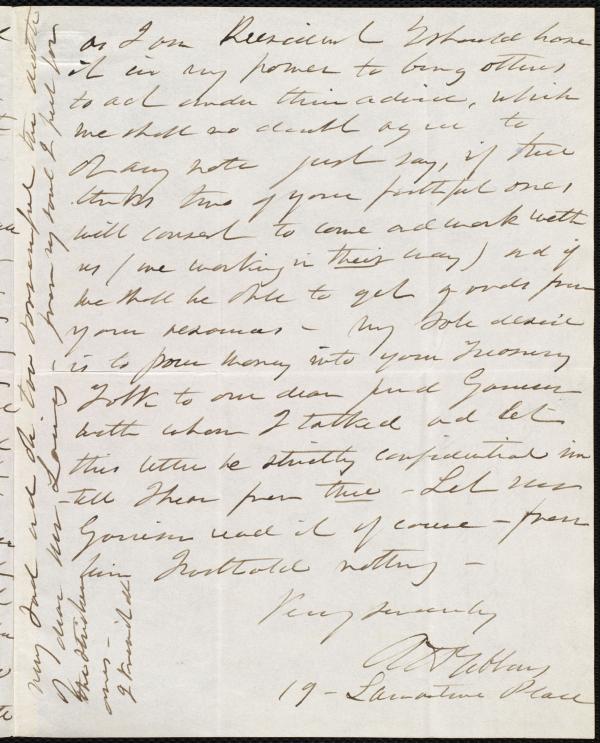 as I am President I should have
it in my power to bring others
to act under their advice, which
we shall no doubt agree to
Or any note just say, if thee
thinks two of your faithful ones
will consent to come and work with
us (we working in their way) and if
we shall be able to get goods from
your resources - My sole desire
is to pour money into your Treasury
Talk to our dear friend Garrison
with whom I talked and let
this letter be strictly confidential un
till I hear from thee - Let
Garrison read it of course - from
him I withhold nothing -
Very sincerely
A H Gibbons
19 - Lamartine Place
very sad and oh too sorrowful the death
of dear Mrs Loring - from my soul I feel for
the stricken
ones -
I knew it all